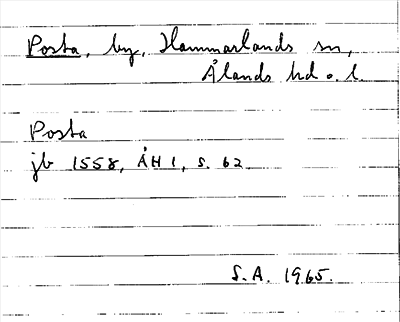 Posta, by, Hammarlands sn,
Ålands hd o. l.
Posta
jb 1558, ÅH 1, s. 62
S.A. 1965.